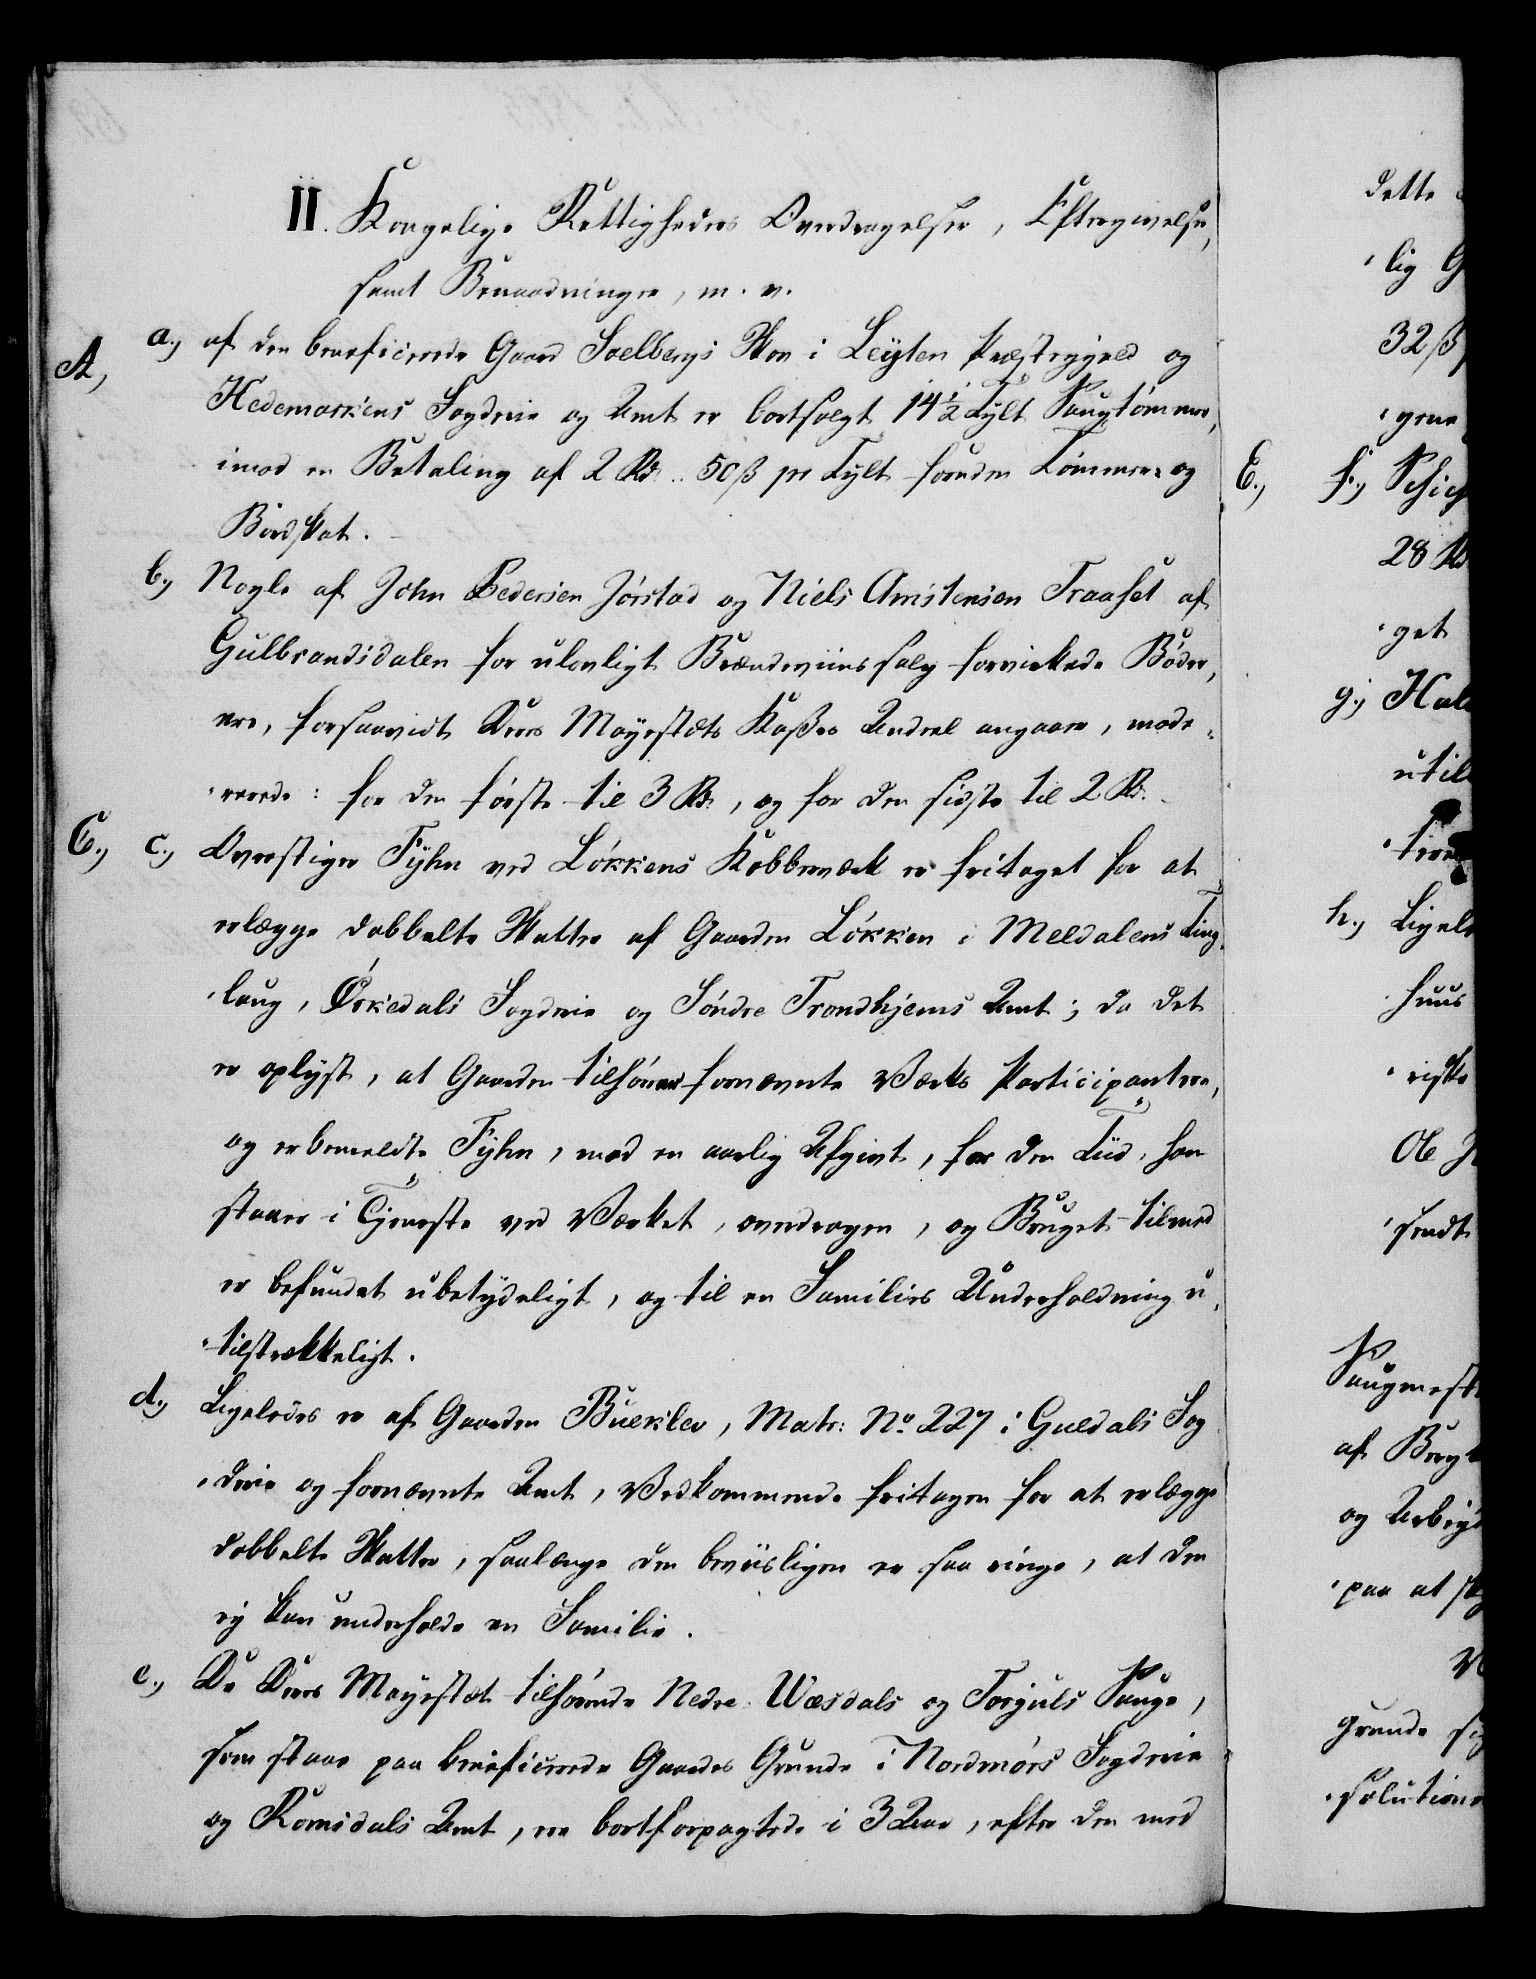 II. Kongelige Rettigheders Overdragelser, Eftergivelser,
samt Benaadninger, m. v.
A, a.) af den beneficerede Gaard Soelbergs Skov i Leÿten Præstegjeld og
Hedemarkens Fogderie og Amt er bortsolgt 14½ Tylt Saugtømmer,
imod en Betaling af 2 Rd. 50 ß pr Tylt foruden Tømmer- og
Bordskat.
b.) Nogle af John Pedersen Jørstad og Niels Arnstensen Traaset af
Gulbrandsdalen for ulovligt Brændeviinssalg forvirkede Bøder,
ere, forsaavidt Deres Majestæts Kaßes Andeel angaaer, mode-
rerede: for den første til 3 Rd., og for den sidste til 2 Rd.
C., c.) Overstiger Fyhn ved Løkkens Kobberværk er fritaget for at
erlægge dobbelte Skatter af Gaarden Løkken i Meldalens Ting-
laug, Ørkedals Fogderie og Søndre Trondhjems Amt; da det
er oplyst, at Gaarden tilhører fornævnte Værks Participantere,
og er bemeldte Fyhn, mod en aarlig Afgivt, for den Tiid, han
staaer i Tjeneste ved Værket, overdragen, og Bruget tilmed
er befundet ubetydeligt, og til en Families Underholdning u-
tilstrækkeligt.
d.) Ligeledes er af Gaarden Bueklev, Matr: No. 227 i Guldals Fog-
derie og fornævnte Amt, Vedkommende fritagen for at erlægge
dobbelte Skatter, saalænge den beviisligen er saa ringe, at den
ej kan underholde en Familie.
e.) De Deres Majestæt tilhørende Nedre Wæsdals og Torjuls Sauge,
som staae paa beneficerede Gaardes Grunde i Nordmørs Fogderie
og Romsdals Amt, ere bortforpagtede i 3 Aar, efter den med
dette
lig
32 ß
E., f.)
28 Rd
get
g.)
h.)
huus
Ole
sendt
af
og
paa at
grunde